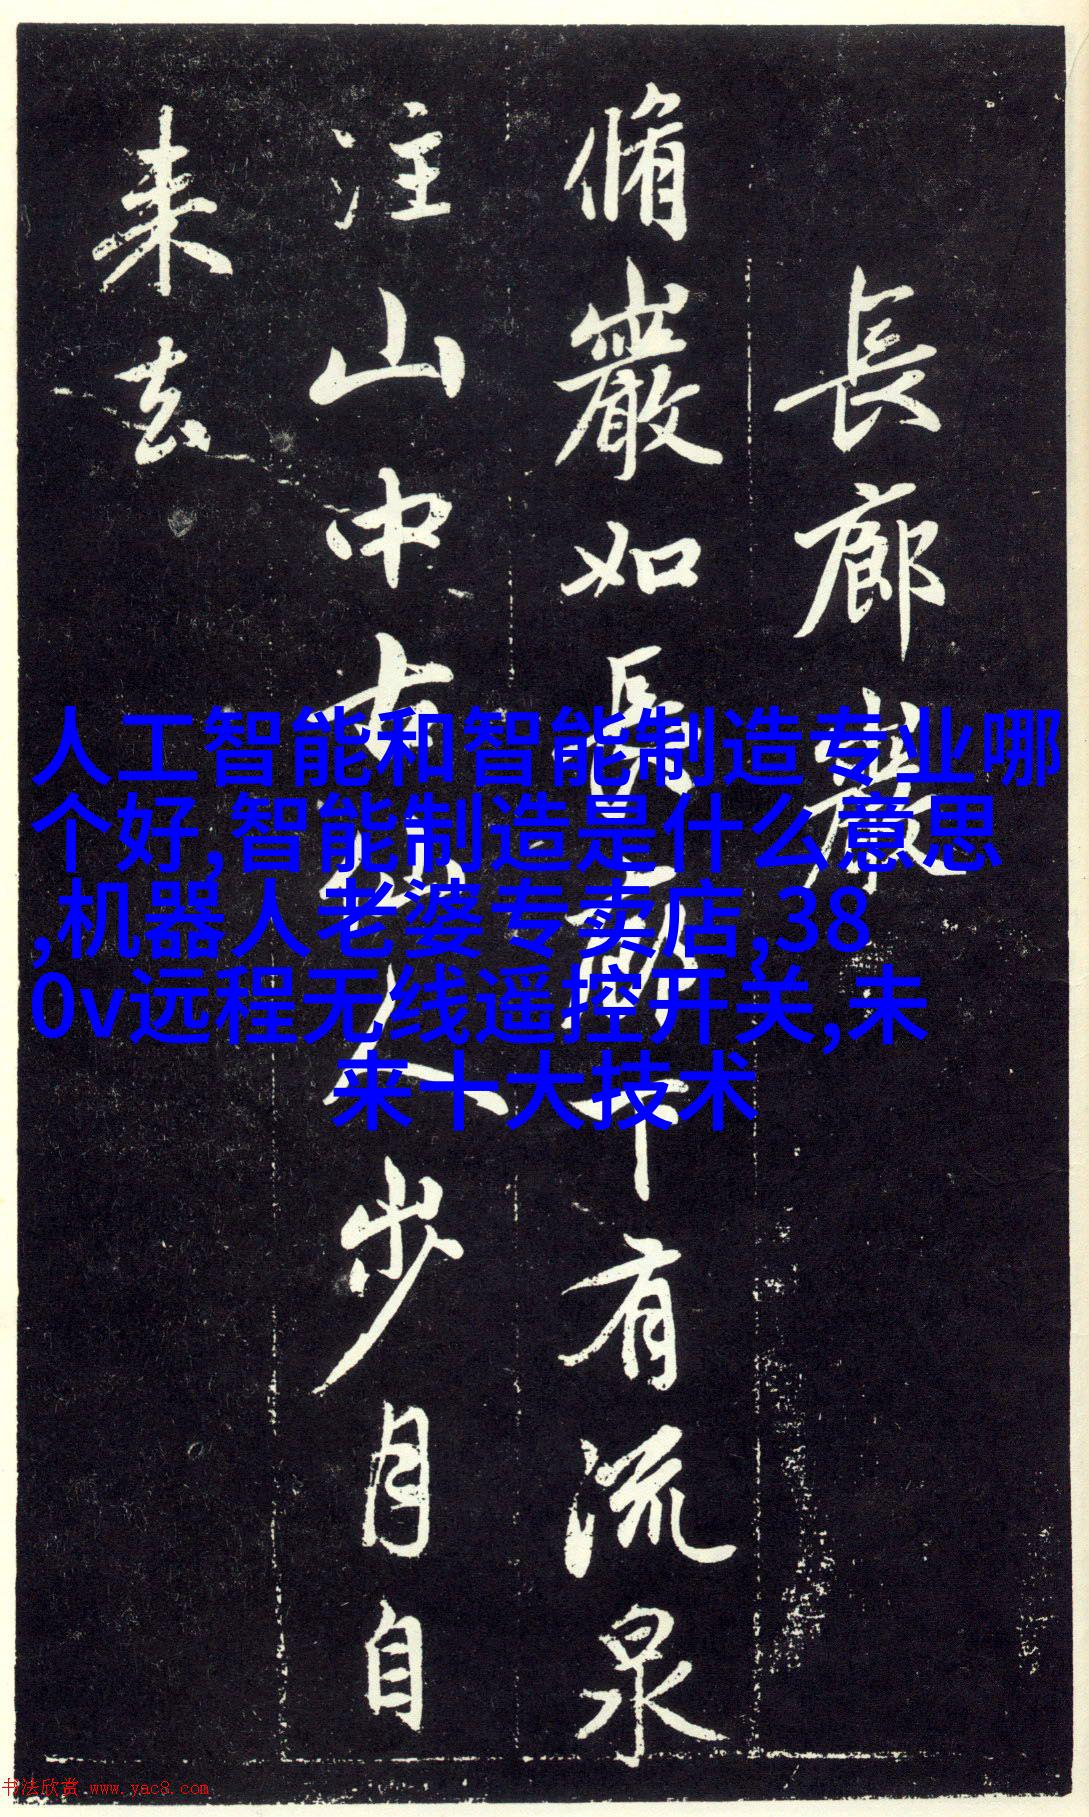 長廊巖
脩巖如長廊下有流泉
注山中古仙人步月自
来去
人工智能和智能制造专业哪
个好,智能制造是什么意思
,机器人老婆专卖店,38
0v远程无线遥控开关,未
来十大技术
书法欣赏 www.yac8.com